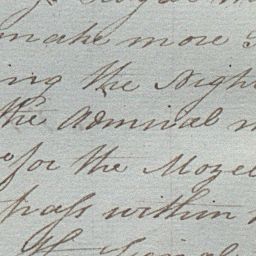 make more
ing the Nigh
the Admiral
for the Moze
pass within